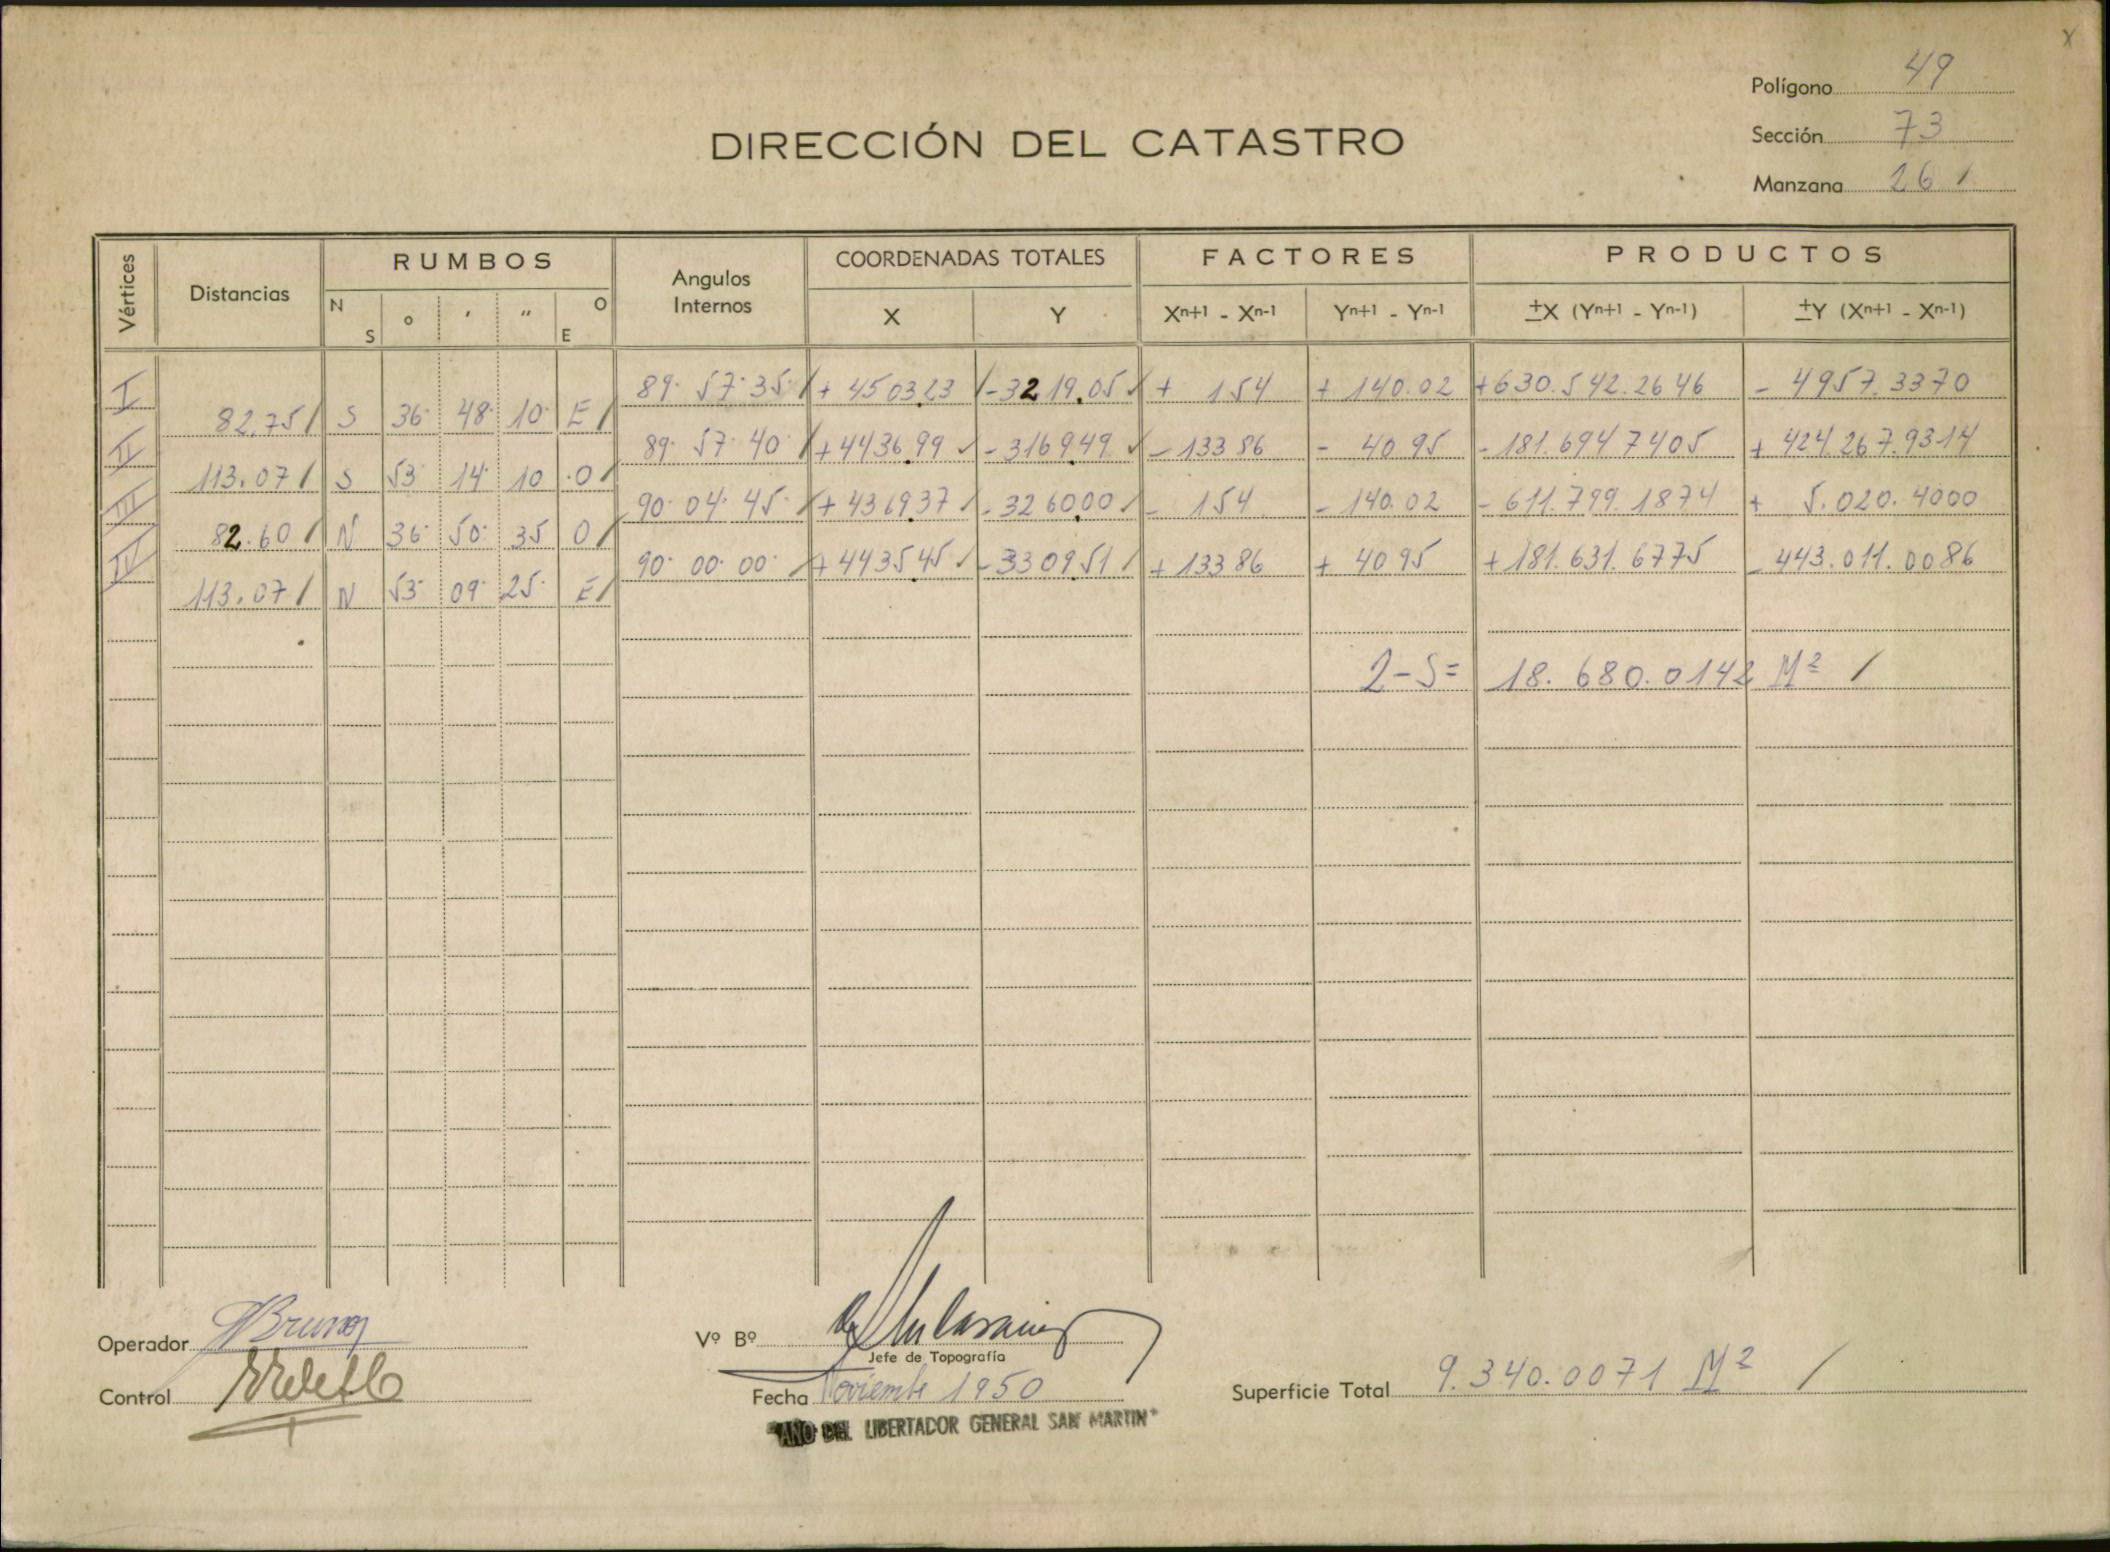 Polígono 49
DIRECCIÓN DEL CATASTRO
Sección 73
Manzana 26 /
Vértices Distancias RUMBOS Angulos Internos COORDENADAS TOTALES FACTORES PRODUCTOS
N S ° ' " O E X Y Xn+1 - Xn-1 Yn+1 - Yn-1 ±X (Yn+1 - Yn-1) ±Y (Xn+1 - Xn-1)
I 89· 57· 35· / + 4503.23 / - 3219.05 / + 154 + 140.02 + 630.542.2646 - 4957.3370
82.75 / S 36· 48· 10· E /
II 89· 57· 40· / + 4436.99 / - 3169.49 / - 133 86 - 40 95 - 181.694 7405 + 424.267.9314
113.07 / S 53· 14· 10 ·O /
III 90· 04· 45· / + 4369.37 / - 3260.00 / - 154 - 140.02 - 611.799.1874 + 5.020.4000
82.60 / N 36· 50· 35 O /
IV 90· 00· 00· / + 4435.45 / - 3309.51 / + 133 86 + 40 95 + 181.631.6775 - 443.011.0086
113.07 / N 53· 09· 25· E /
2-S= 18.680.0142 M² /
Operador Bruno
Vº Bº
Jefe de Topografía
Control
Fecha Noviembre 1950
Superficie Total 9.340.0071 M² /
"AÑO DEL LIBERTADOR GENERAL SAN MARTIN"